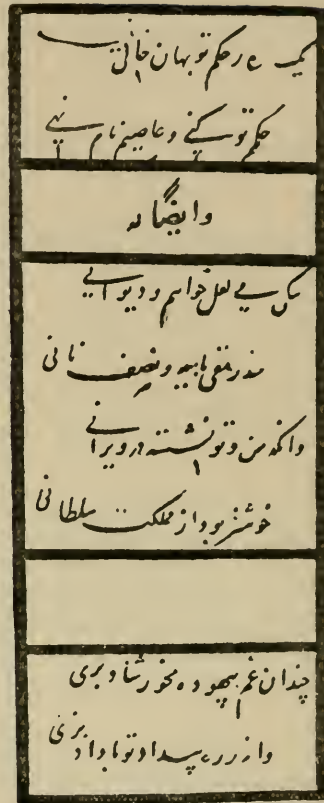 یک ذره ز حکم تو جهان خالی نیست
حکم تو کنی و عاصیم نام نهی
وایضاً له
تنگی می لعل خواهم و دیوانی
سد رمقی باید و نصف نانی
وانگه من و تو نشسته در ویرانی
خوشتر بود از مملکت سلطانی
چندان غم بیهوده مخور شاد بزی
واندر ره بیداد تو با داد بزی